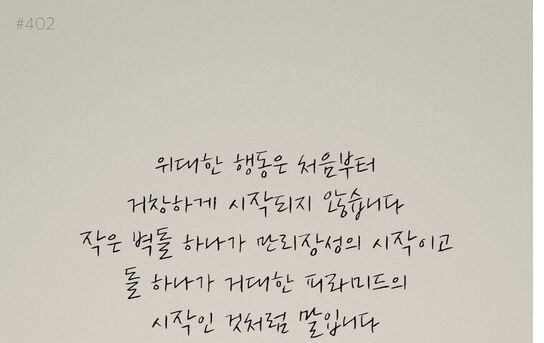 #402
위대한 행동은 처음부터
거창하게 시작되지 않습니다
작은 벽돌 하나가 만리장성의 시작이고
돌 하나가 거대한 피라미드의
시작인 것처럼 말입니다